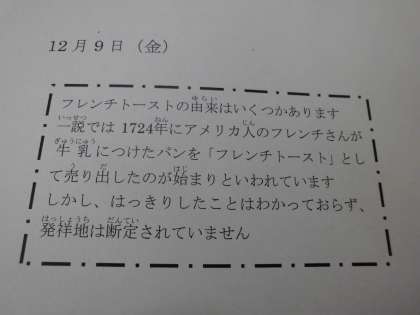 12月9日（金）
フレンチトーストの由来はいくつかあります
一説では 1724年にアメリカ人のフレンチさんが
牛乳につけたパンを「フレンチトースト」とし
て売り出したのが始まりといわれています
しかし、はっきりしたことはわかっておらず、
発祥地は断定されていません